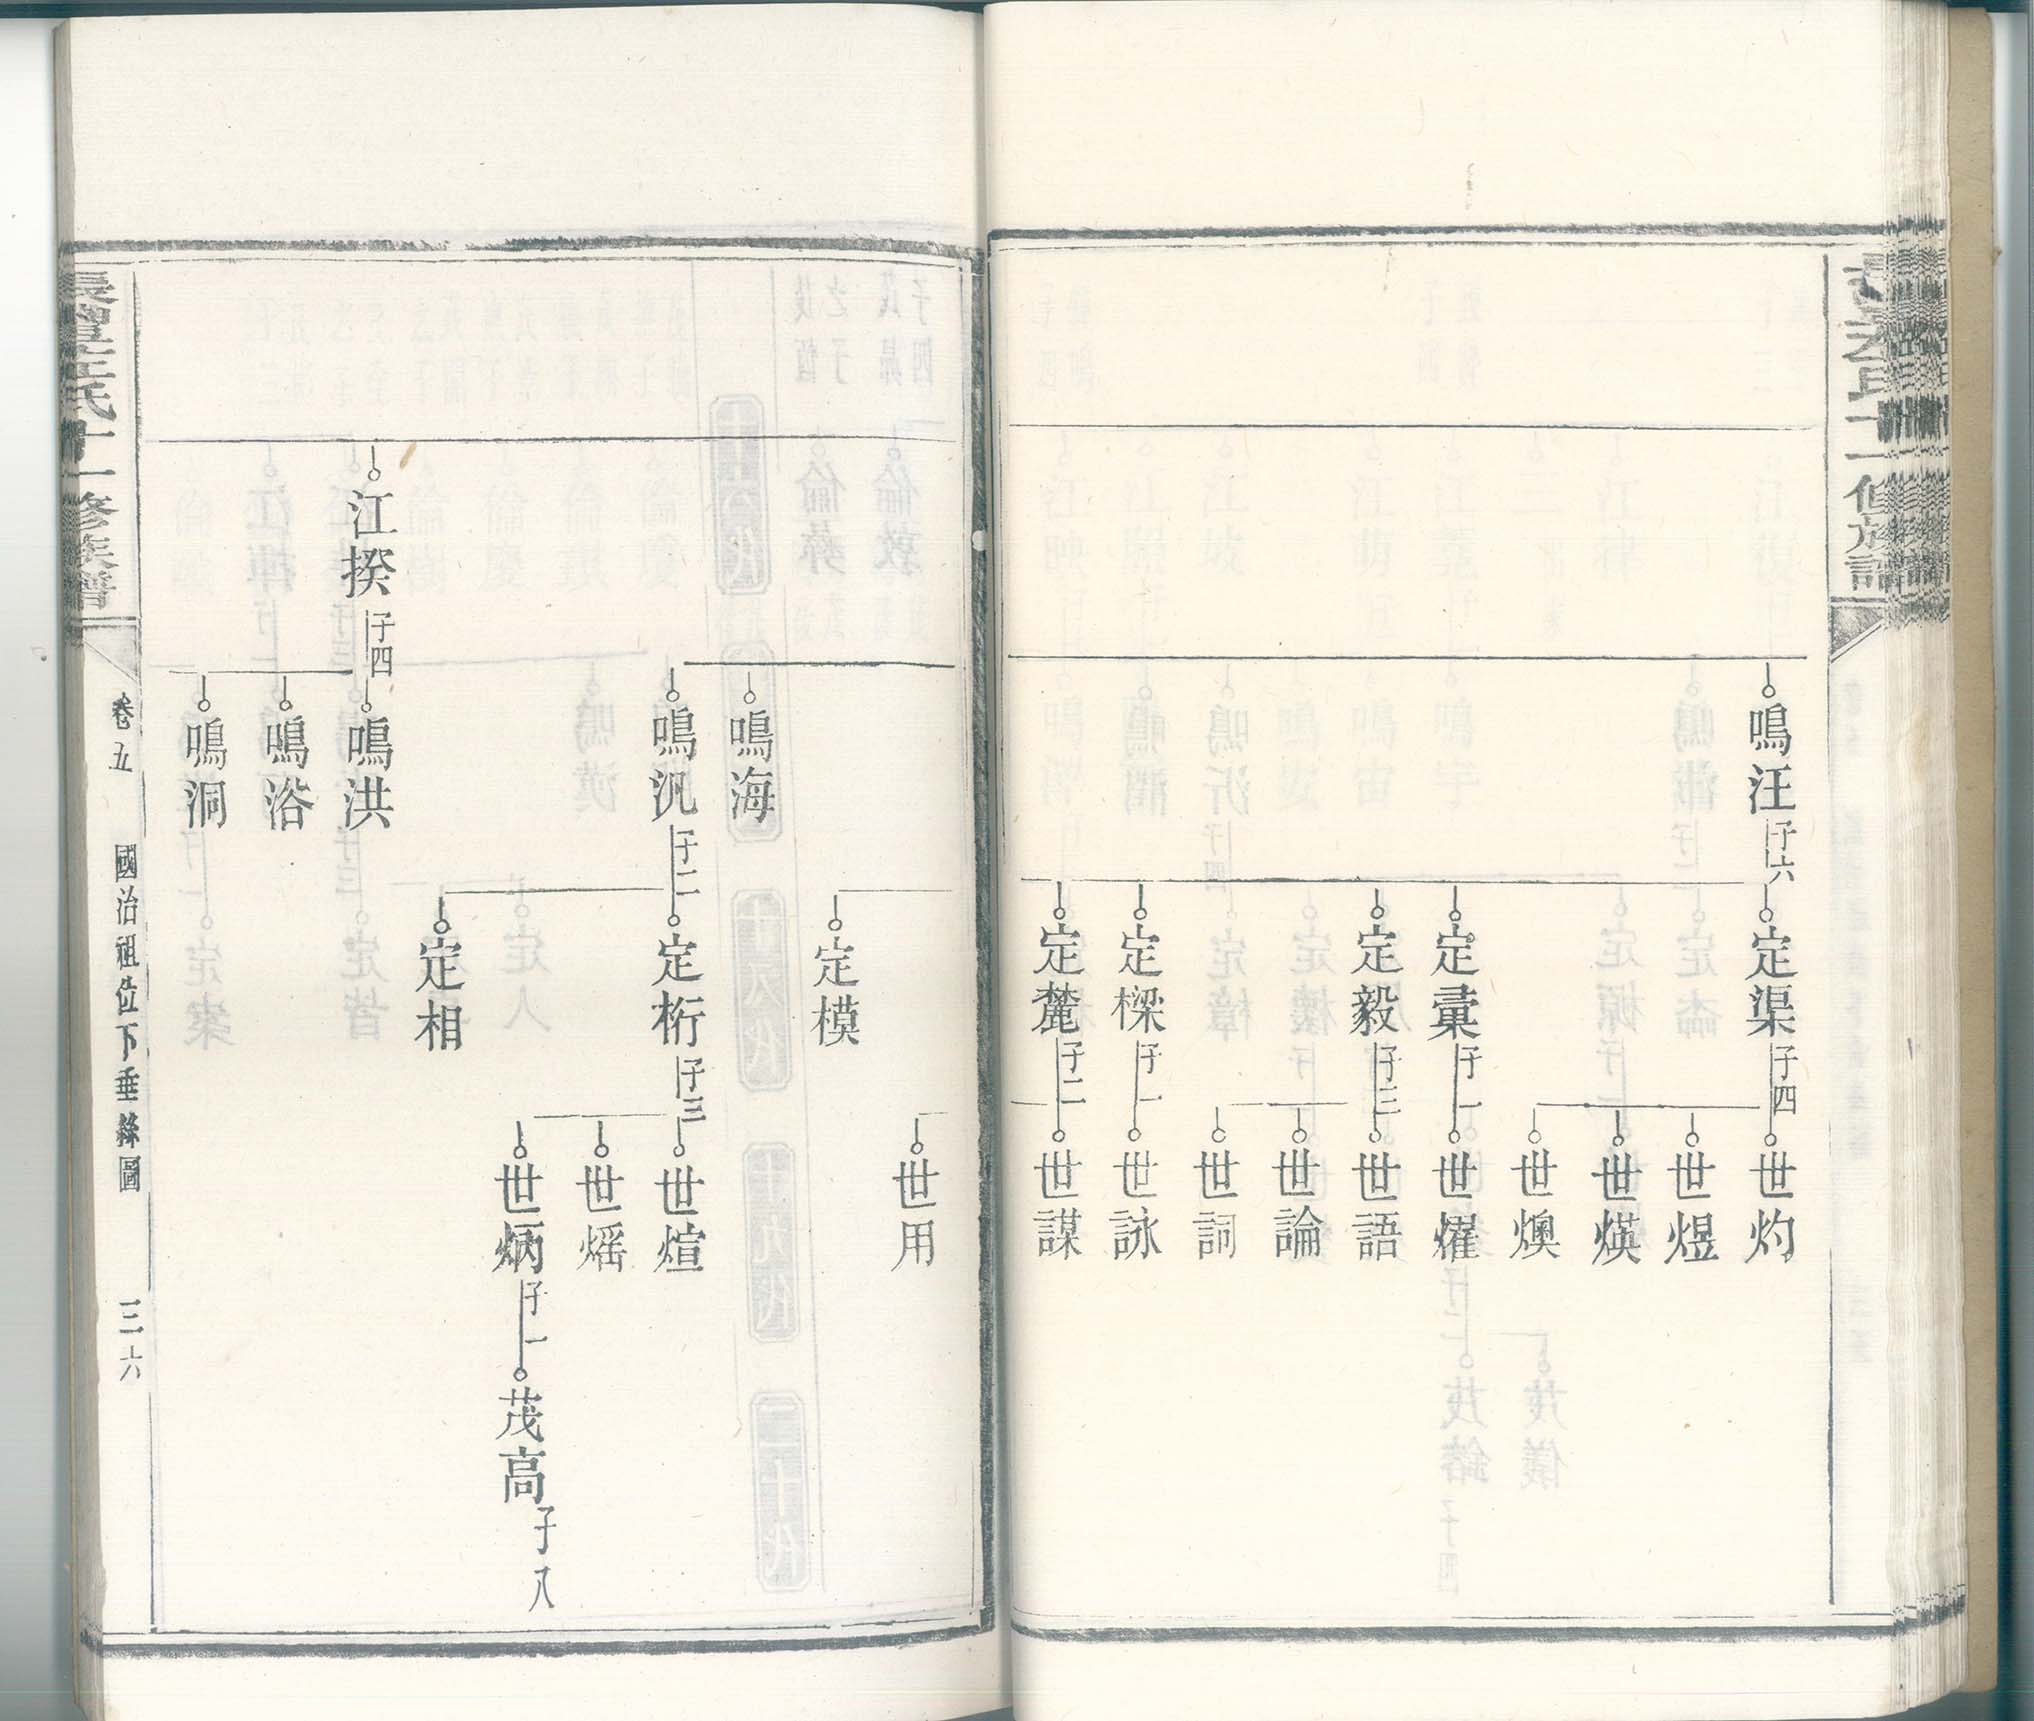 鳴汪
子六
定渠
子四
世灼
世煜
世煐
世燠
定彙
子一
世燿
定毅
子三
世語
世論
世詞
定樑
子一
世詠
定麓
子二
世謀
世用
定模
鳴海
鳴汎
子二
定桁
子三
世煊
世熎
世炳
子一
茂高
子八
定相
江揆
子四
鳴洪
鳴浴
鳴洞
氏十一修族譜
卷五
國治祖位下垂絲圖
三六